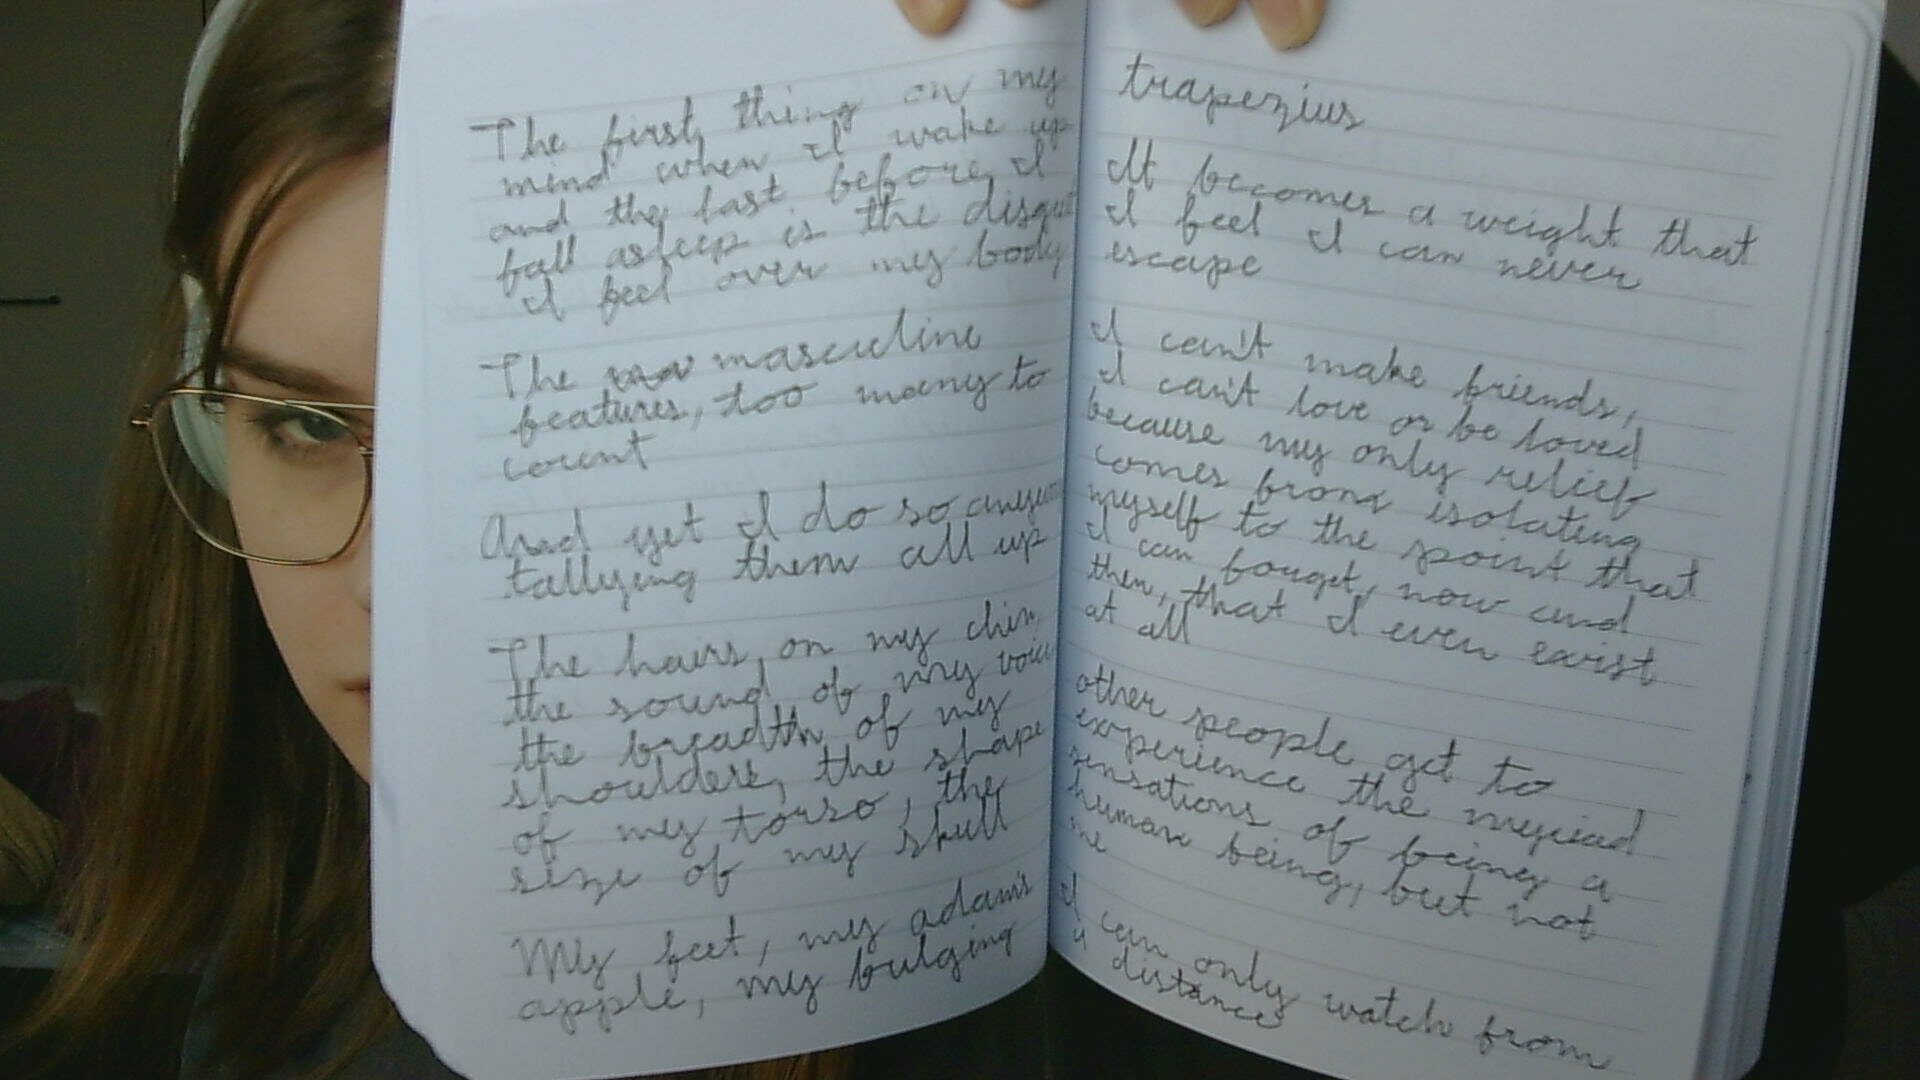 The first thing on my
mind when I wake up
and the last before I
fall asleep is the disgust
I feel over my body
The masculine
features, too many to
count
And yet I do so anyway
tallying them all up
The hairs on my chin,
the sound of my voice
the breadth of my
shoulders, the shape
of my torso, the
size of my skull
My feet, my adam's
apple, my bulging
trapezius
It becomes a weight that
I feel I can never
escape
I can't make friends,
I can't love or be loved
because my only relief
comes from isolating
myself to the point that
I can forget, now and
then, that I even exist
at all
other people get to
experience the myriad
sensations of being a
human being, but not
me
I can only watch from
a distance